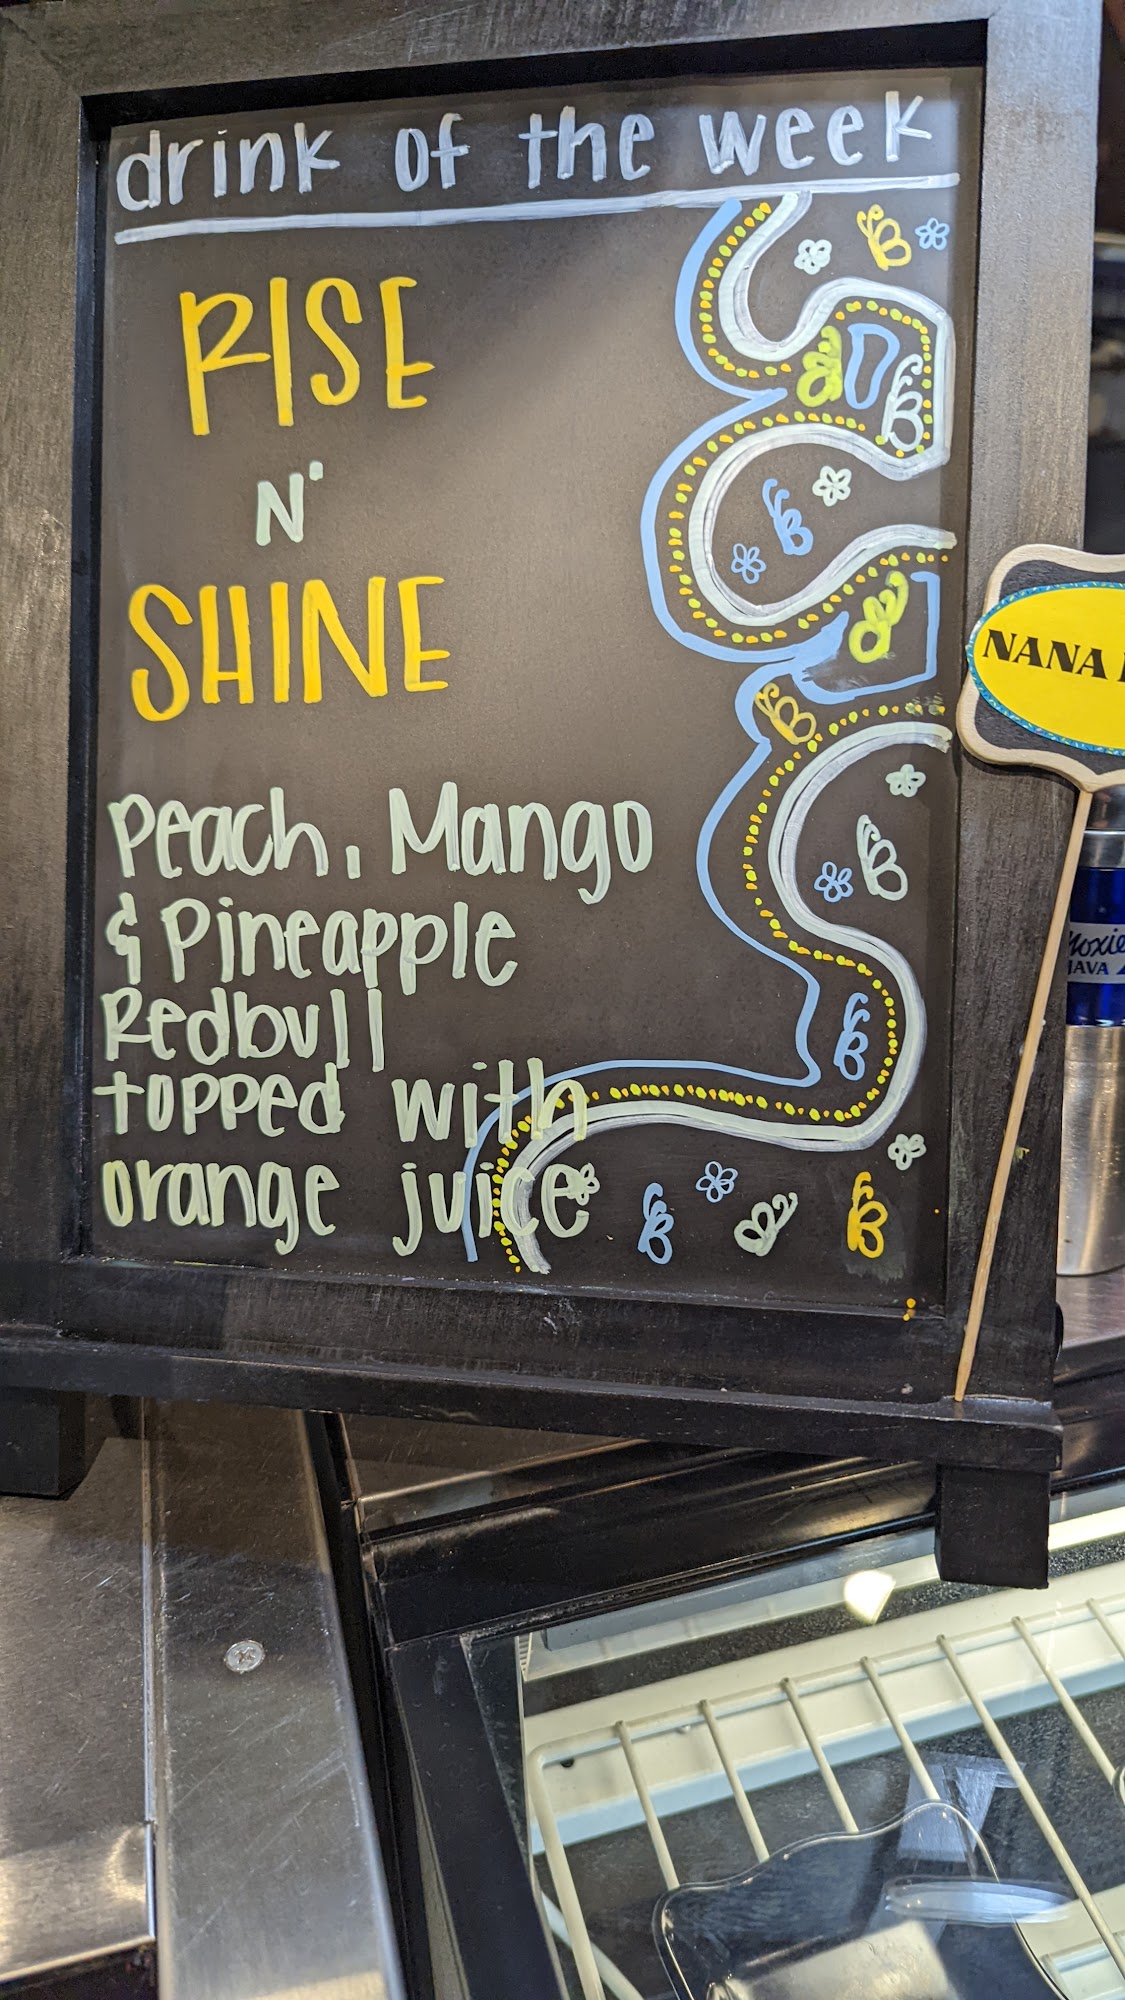 drink of the week
RISE
N'
SHINE
Peach, Mango
& Pineapple
Redbull
topped with
orange juice
NANA
moxie
JAVA